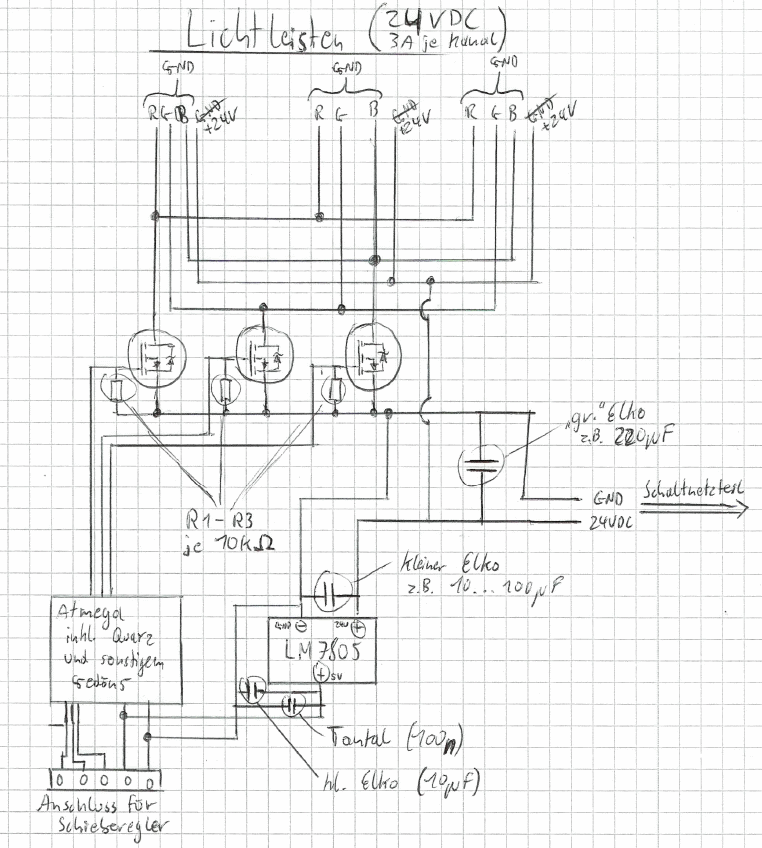 Lichtleisten (24VDC
3A je Kanal)
GND GND GND
R G B GND +24V R G B GND +24V R G B GND +24V
„gr." Elko
z.B. 220µF
GND
24VDC
Schaltnetzteil
R1-R3
je 10kΩ
kleiner Elko
z.B. 10...100µF
Atmega
inkl. Quarz
und sonstigem
Gedöns
GND ⊖ 24V ⊕
LM7805
⊕ 5V
Tantal (100n)
kl. Elko (10µF)
Anschluss für
Schieberegler